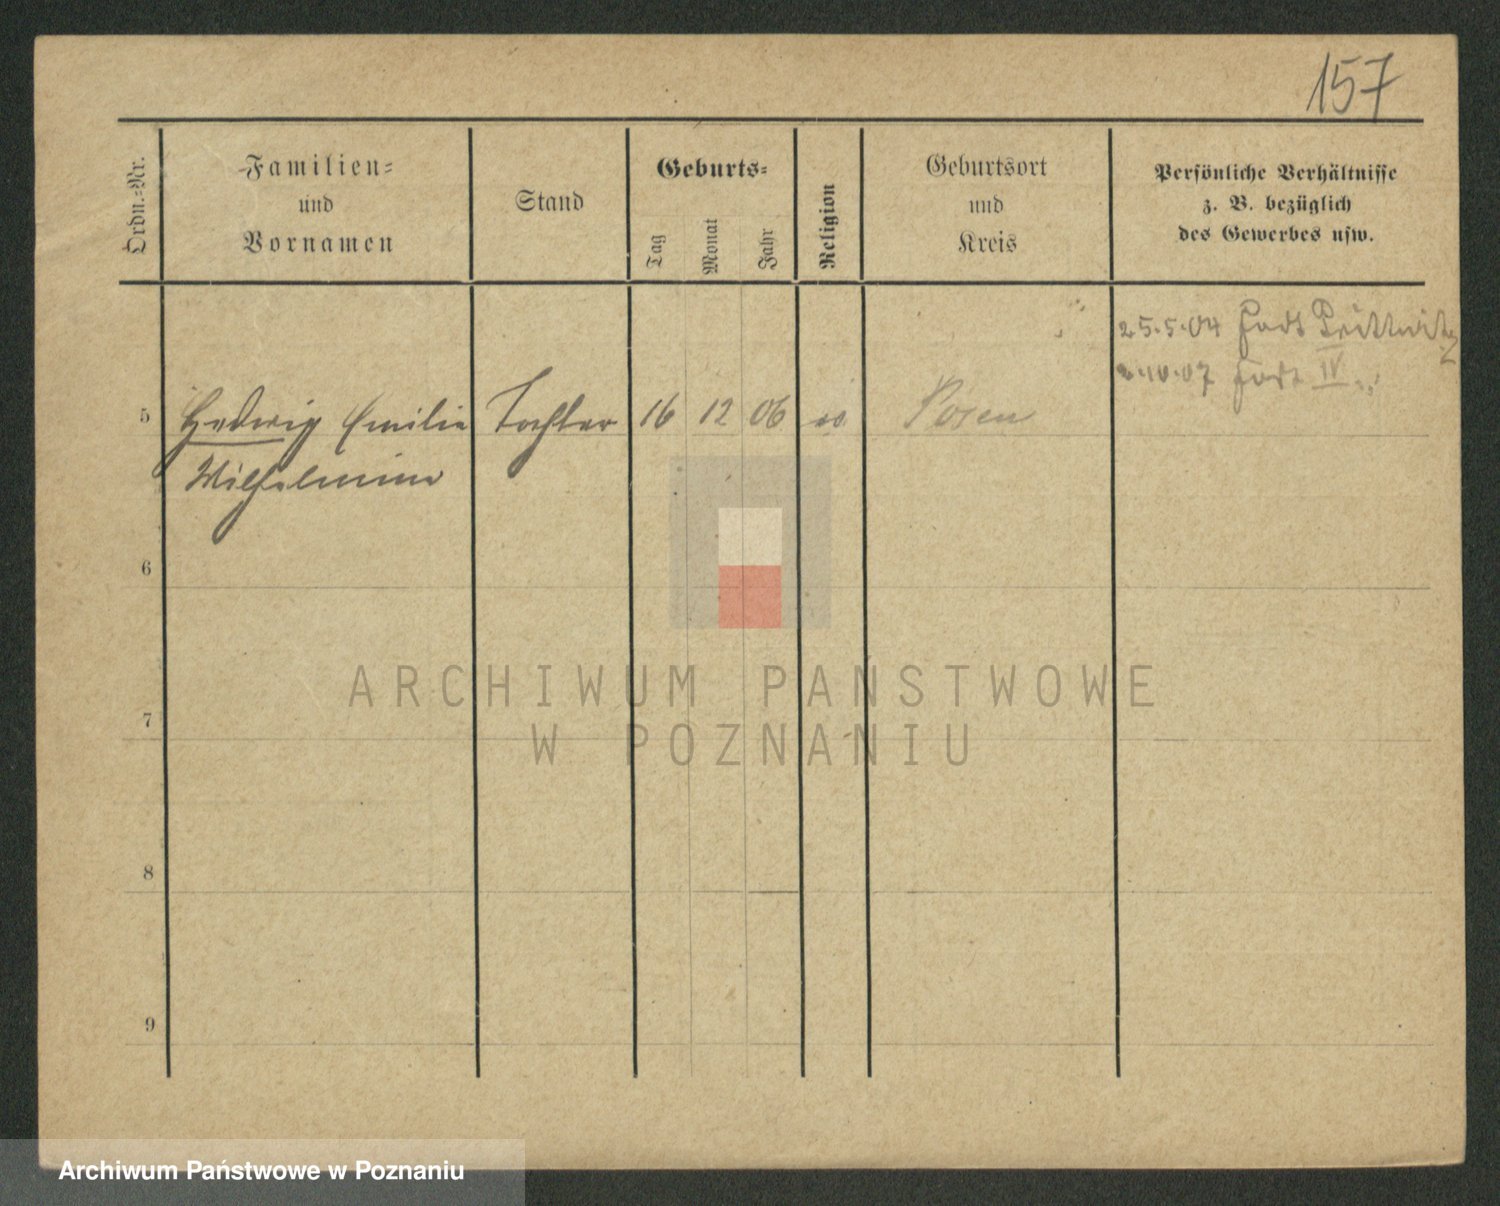 157
Ordn.=Nr.
Familien=
und
Vornamen
Stand
Geburts=
Tag
Monat
Jahr
Religion
Geburtsort
und
Kreis
Persönliche Verhältnisse
z. B. bezüglich
des Gewerbes usw.
25.5.04 Fort Prittwitz
10.07 Fort IV
5 Hedwig Emilie Tochter 16 12 06 Posen
Wilhelmine
6
7
8
9
ARCHIWUM PAŃSTWOWE
W POZNANIU
Archiwum Państwowe w Poznaniu